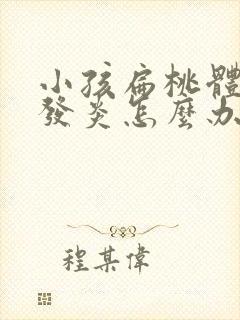 小孩扁桃體
發炎怎麼办
程某偉